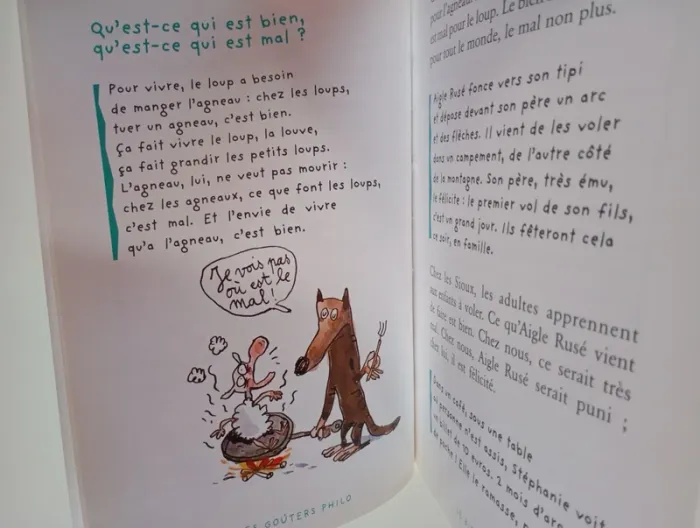 Qu'est-ce qui est bien,
qu'est-ce qui est mal ?
Pour vivre, le loup a besoin
de manger l'agneau : chez les loups,
tuer un agneau, c'est bien.
Ça fait vivre le loup, la louve,
ça fait grandir les petits loups.
L'agneau, lui, ne veut pas mourir :
chez les agneaux, ce que font les loups,
c'est mal. Et l'envie de vivre
qu'a l'agneau, c'est bien.
Je vois pas
où est le
mal !
ES GOÛTERS PHILO
pour l'agneau
est mal pour le loup. Le bien
pour tout le monde, le mal non plus.
Aigle Rusé fonce vers son tipi
et dépose devant son père un arc
et des flèches. Il vient de les voler
dans un campement, de l'autre côté
de la montagne. Son père, très ému,
le félicite : le premier vol de son fils,
c'est un grand jour. Ils fêteront cela
ce soir, en famille.
Chez les Sioux, les adultes apprennent
aux enfants à voler. Ce qu'Aigle Rusé vient
de faire est bien. Chez nous, ce serait très
mal. Chez nous, Aigle Rusé serait puni ;
chez lui, il est félicité.
Dans un café, sous une table
où personne n'est assis, Stéphanie voit
un billet de 10 euros. 2 mois d'arg
de poche ! Elle le ramasse, p